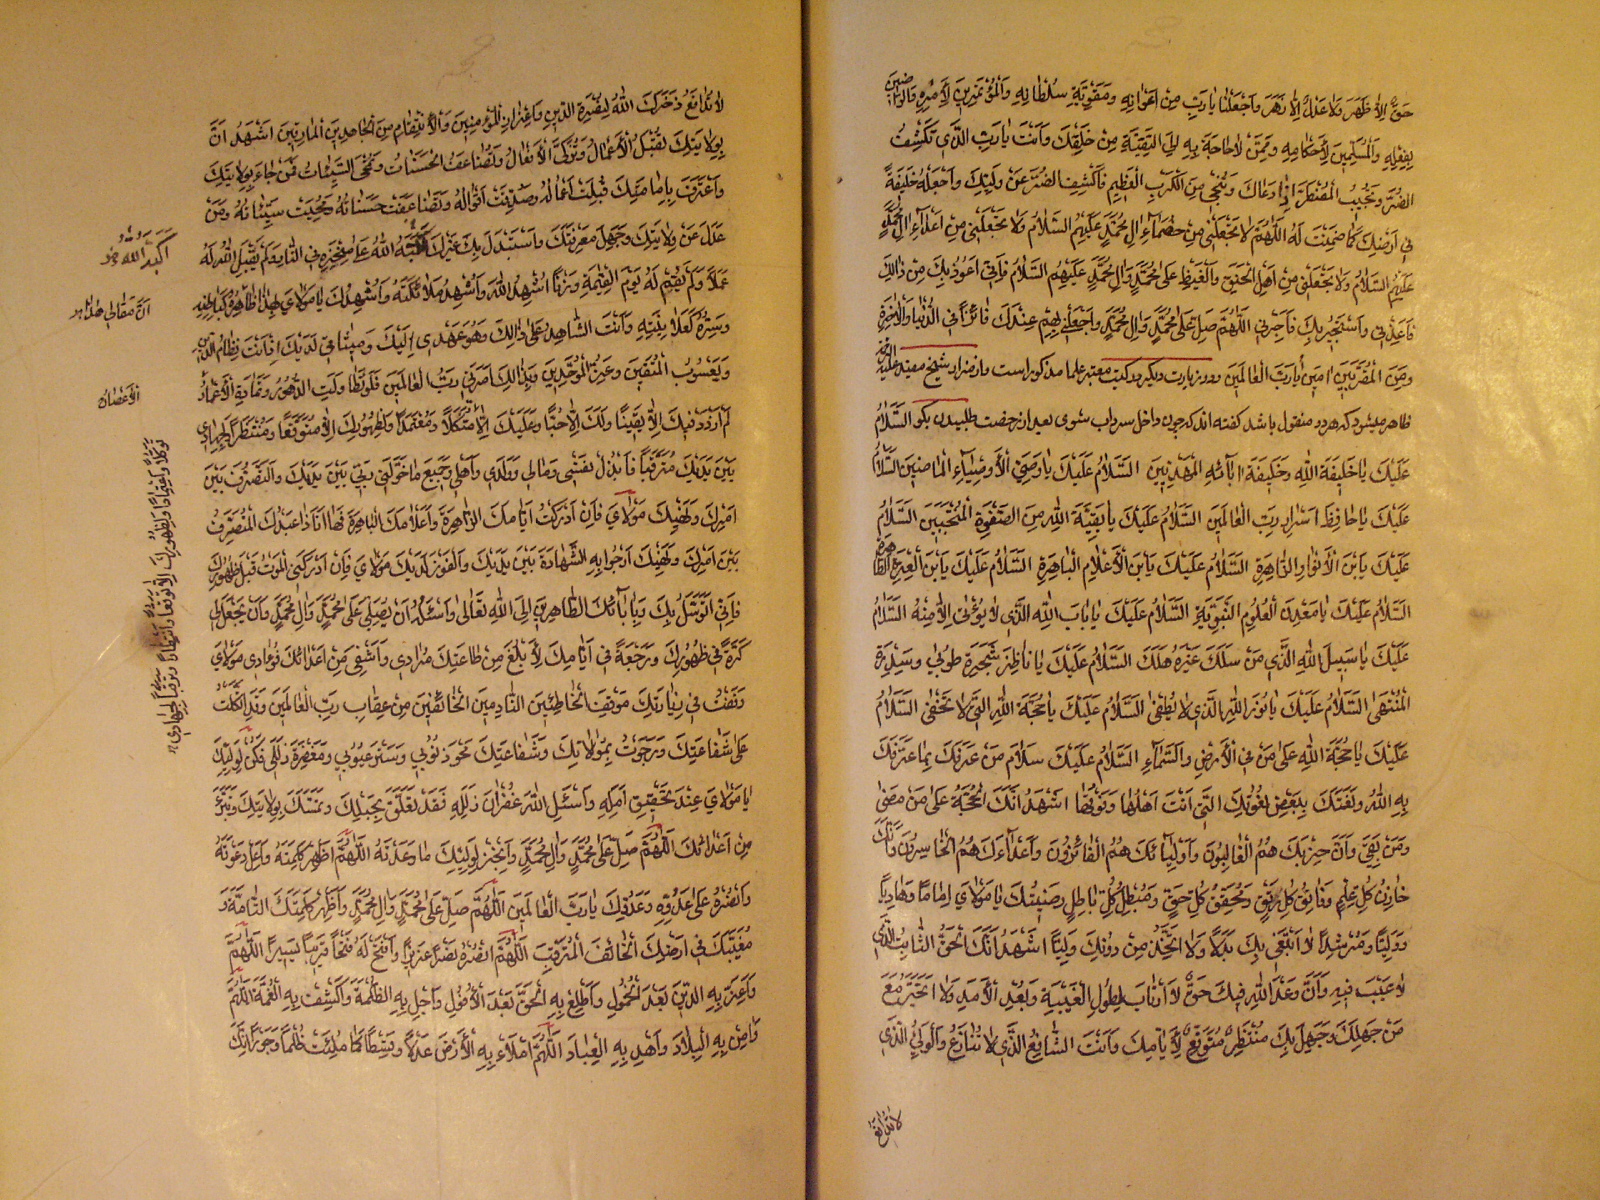 حَقٌّ اِلاّٰ ظَهَرَ وَلا عَدْلٌ اِلاّٰ زَهَرَ وَاجْعَلْنٰا يٰا رَبِّ مِنْ اَعْوٰانِهِ وَمُقَوِّيَةِ سُلْطٰانِهِ وَالْمُؤْتَمِرِينَ لِاَمْرِهِ وَالرّٰاضِينَ
بِفِعْلِهِ وَالْمُسَلِّمِينَ لِاَحْكٰامِهِ وَمِمَّنْ لاٰ حٰاجَةَ بِهِ اِلَى التَّقِيَّةِ مِنْ خَلْقِكَ وَاَنْتَ يٰا رَبِّ الَّذِي تَكْشِفُ
الضُّرَّ وَتُجِيبُ الْمُضْطَرَّ اِذٰا دَعٰاكَ وَتُنْجِي مِنَ الْكَرْبِ الْعَظِيمِ فَاكْشِفِ الضُّرَّ عَنْ وَلِيِّكَ وَاجْعَلْهُ خَلِيفَةً
فِي اَرْضِكَ كَمٰا ضَمِنْتَ لَهُ اَللّٰهُمَّ لاٰ تَجْعَلْنِي مِنْ خُصَمٰاءِ اٰلِ مُحَمَّدٍ عَلَيْهِمُ السَّلاٰمُ وَلاٰ تَجْعَلْنِي مِنْ اَعْدٰاءِ اٰلِ مُحَمَّدٍ
عَلَيْهِمُ السَّلاٰمُ وَلاٰ تَجْعَلْنِي مِنْ اَهْلِ الْحَنَقِ وَالْغَيْظِ عَلىٰ مُحَمَّدٍ وَاٰلِ مُحَمَّدٍ عَلَيْهِمُ السَّلاٰمُ فَاِنِّي اَعُوذُ بِكَ مِنْ ذٰلِكَ
فَاَعِذْنِي وَاَسْتَجِيرُ بِكَ فَاَجِرْنِي اَللّٰهُمَّ صَلِّ عَلىٰ مُحَمَّدٍ وَاٰلِ مُحَمَّدٍ وَاجْعَلْنِي بِهِمْ عِنْدَكَ فٰائِزاً فِي الدُّنْيٰا وَالْاٰخِرَةِ
وَمِنَ الْمُقَرَّبِينَ اٰمِينَ يٰا رَبَّ الْعٰالَمِينَ ودو زيارت ديگر در كتب معتبر علما مذكور است واز مزار شيخ مفيد عليه الرحمه
ظاهر ميشود كه هر دو منقول باشد گفته اند كه چون داخل سرداب شوى بعد از رخصت طلبيدن بگو اَلسَّلاٰمُ
عَلَيْكَ يٰا خَلِيفَةَ اللّٰهِ وَخَلِيفَةَ اٰبٰآئِهِ الْمَهْدِيِّينَ اَلسَّلاٰمُ عَلَيْكَ يٰا وَصِيَّ الْاَوْصِيٰاءِ الْمٰاضِينَ اَلسَّلاٰمُ
عَلَيْكَ يٰا حٰافِظَ اَسْرٰارِ رَبِّ الْعٰالَمِينَ اَلسَّلاٰمُ عَلَيْكَ يٰا بَقِيَّةَ اللّٰهِ مِنَ الصَّفْوَةِ الْمُنْتَجَبِينَ اَلسَّلاٰمُ
عَلَيْكَ يَابْنَ الْاَنْوٰارِ الزّٰاهِرَةِ اَلسَّلاٰمُ عَلَيْكَ يَابْنَ الْاَعْلاٰمِ الْبٰاهِرَةِ اَلسَّلاٰمُ عَلَيْكَ يَابْنَ الْعِتْرَةِ الطّٰاهِرَةِ
اَلسَّلاٰمُ عَلَيْكَ يٰا مَعْدِنَ الْعُلُومِ النَّبَوِيَّةِ اَلسَّلاٰمُ عَلَيْكَ يٰا بٰابَ اللّٰهِ الَّذِي لاٰ يُؤْتىٰ اِلاّٰ مِنْهُ اَلسَّلاٰمُ
عَلَيْكَ يٰا سَبِيلَ اللّٰهِ الَّذِي مَنْ سَلَكَ غَيْرَهُ هَلَكَ اَلسَّلاٰمُ عَلَيْكَ يٰا نٰاظِرَ شَجَرَةِ طُوبىٰ وَسِدْرَةِ
الْمُنْتَهىٰ اَلسَّلاٰمُ عَلَيْكَ يٰا نُورَ اللّٰهِ الَّذِي لاٰ يُطْفىٰ اَلسَّلاٰمُ عَلَيْكَ يٰا حُجَّةَ اللّٰهِ الَّتِي لاٰ تَخْفىٰ اَلسَّلاٰمُ
عَلَيْكَ يٰا حُجَّةَ اللّٰهِ عَلىٰ مَنْ فِي الْاَرْضِ وَالسَّمٰاءِ اَلسَّلاٰمُ عَلَيْكَ سَلاٰمَ مَنْ عَرَفَكَ بِمٰا عَرَّفَكَ
بِهِ اللّٰهُ وَنَعَتَكَ بِبَعْضِ نُعُوتِكَ الَّتِي اَنْتَ اَهْلُهٰا وَفَوْقُهٰا اَشْهَدُ اَنَّكَ الْحُجَّةُ عَلىٰ مَنْ مَضىٰ
وَمَنْ بَقِيَ وَاَنَّ حِزْبَكَ هُمُ الْغٰالِبُونَ وَاَوْلِيٰائَكَ هُمُ الْفٰائِزُونَ وَاَعْدٰاءَكَ هُمُ الْخٰاسِرُونَ وَاَنَّكَ
خٰازِنُ كُلِّ عِلْمٍ وَفٰاتِقُ كُلِّ رَتْقٍ وَمُحَقِّقُ كُلِّ حَقٍّ وَمُبْطِلُ كُلِّ بٰاطِلٍ رَضِيتُكَ يٰا مَوْلاٰيَ اِمٰاماً وَهٰادِياً
وَوَلِيّاً وَمُرْشِداً لاٰ اَبْتَغِي بِكَ بَدَلاً وَلاٰ اَتَّخِذُ مِنْ دُونِكَ وَلِيّاً اَشْهَدُ اَنَّكَ الْحَقُّ الثّٰابِتُ الَّذِي
لاٰ عَيْبَ فِيهِ وَاَنَّ وَعْدَ اللّٰهِ فِيكَ حَقٌّ لاٰ اَرْتٰابُ لِطُولِ الْغَيْبَةِ وَبُعْدِ الْاَمَدِ وَلاٰ اَتَحَيَّرُ مَعَ
مَنْ جَهِلَكَ وَجَهِلَ بِكَ مُنْتَظِرٌ مُتَوَقِّعٌ لِاَيّٰامِكَ وَاَنْتَ الشّٰافِعُ الَّذِي لاٰ تُنٰازَعُ وَالْوَلِيُّ الَّذِي
لاٰ تُدٰافَعُ
لاٰ تُدٰافَعُ ذَخَرَكَ اللّٰهُ لِنُصْرَةِ الدِّينِ وَاِعْزٰازِ الْمُؤْمِنِينَ وَالْاِنْتِقٰامِ مِنَ الْجٰاحِدِينَ الْمٰارِقِينَ اَشْهَدُ اَنَّ
بِوِلاٰيَتِكَ تُقْبَلُ الْاَعْمٰالُ وَتُزَكَّى الْاَفْعٰالُ وَتُضٰاعَفُ الْحَسَنٰاتُ وَتُمْحَى السَّيِّئٰاتُ فَمَنْ جٰاءَ بِوِلاٰيَتِكَ
وَاعْتَرَفَ بِاِمٰامَتِكَ قُبِلَتْ اَعْمٰالُهُ وَصُدِّقَتْ اَقْوٰالُهُ وَتَضٰاعَفَتْ حَسَنٰاتُهُ وَمُحِيَتْ سَيِّئٰاتُهُ وَمَنْ
عَدَلَ عَنْ وِلاٰيَتِكَ وَجَهِلَ مَعْرِفَتَكَ وَاسْتَبْدَلَ بِكَ غَيْرَكَ كَبَّهُ اللّٰهُ عَلىٰ مَنْخِرِهِ فِي النّٰارِ وَلَمْ يَقْبَلِ اللّٰهُ لَهُ
عَمَلاً وَلَمْ يُقِمْ لَهُ يَوْمَ الْقِيٰمَةِ وَزْناً اُشْهِدُ اللّٰهَ وَاُشْهِدُ مَلاٰئِكَتَهُ وَاُشْهِدُكَ يٰا مَوْلاٰيَ بِهٰذٰا ظٰاهِرُهُ كَبٰاطِنِهِ
وَسِرُّهُ كَعَلاٰنِيَتِهِ وَاَنْتَ الشّٰاهِدُ عَلىٰ ذٰلِكَ وَهُوَ عَهْدِي اِلَيْكَ وَمِيثٰاقِي لَدَيْكَ اِذْ اَنْتَ نِظٰامُ الدِّينِ
وَيَعْسُوبُ الْمُتَّقِينَ وَعِزُّ الْمُوَحِّدِينَ وَبِذٰلِكَ اَمَرَنِي رَبُّ الْعٰالَمِينَ فَلَوْ تَطٰاوَلَتِ الدُّهُورُ وَتَمٰادَتِ الْاَعْمٰارُ
لَمْ اَزْدَدْ فِيكَ اِلاّٰ يَقِيناً وَلَكَ اِلاّٰ حُبّاً وَعَلَيْكَ اِلاّٰ مُتَّكَلاً وَمُعْتَمَداً وَلِظُهُورِكَ اِلاّٰ مُتَوَقَّعاً وَمُنْتَظَراً لِجِهٰادِي
بَيْنَ يَدَيْكَ مُتَرَقَّباً فَاَبْذُلُ نَفْسِي وَمٰالِي وَوَلَدِي وَاَهْلِي وَجَمِيعَ مٰا خَوَّلَنِي رَبِّي بَيْنَ يَدَيْكَ وَالتَّصَرُّفَ بَيْنَ
اَمْرِكَ وَنَهْيِكَ مَوْلاٰيَ فَاِنْ اَدْرَكْتُ اَيّٰامَكَ الزّٰاهِرَةَ وَاَعْلاٰمَكَ الْبٰاهِرَةَ فَهٰا اَنَا ذٰا عَبْدُكَ الْمُتَصَرِّفُ
بَيْنَ اَمْرِكَ وَنَهْيِكَ اَرْجُوا بِهِ الشَّهٰادَةَ بَيْنَ يَدَيْكَ وَالْفَوْزَ لَدَيْكَ مَوْلاٰيَ فَاِنْ اَدْرَكَنِي الْمَوْتُ قَبْلَ ظُهُورِكَ
فَاِنِّي اَتَوَسَّلُ بِكَ وَبِاٰبٰائِكَ الطّٰاهِرِينَ اِلَى اللّٰهِ تَعٰالىٰ وَاَسْئَلُهُ اَنْ يُصَلِّيَ عَلىٰ مُحَمَّدٍ وَاٰلِ مُحَمَّدٍ وَاَنْ يَجْعَلَ لِي
كَرَّةً فِي ظُهُورِكَ وَرَجْعَةً فِي اَيّٰامِكَ لِاَبْلُغَ مِنْ طٰاعَتِكَ مُرٰادِي وَاَشْفِيَ مِنْ اَعْدٰائِكَ فُؤٰادِي مَوْلاٰيَ
وَقَفْتُ فِي زِيٰارَتِكَ مَوْقِفَ الْخٰاطِئِينَ النّٰادِمِينَ الْخٰائِفِينَ مِنْ عِقٰابِ رَبِّ الْعٰالَمِينَ وَقَدِ اتَّكَلْتُ
عَلىٰ شَفٰاعَتِكَ وَرَجَوْتُ بِمُوٰالاٰتِكَ وَشَفٰاعَتِكَ مَحْوَ ذُنُوبِي وَسَتْرَ عُيُوبِي وَمَغْفِرَةَ زَلَلِي فَكُنْ لِوَلِيِّكَ
يٰا مَوْلاٰيَ عِنْدَ تَحْقِيقِ اَمَلِهِ وَاسْئَلِ اللّٰهَ غُفْرٰانَ زَلَلِهِ فَقَدْ تَعَلَّقَ بِحَبْلِكَ وَتَمَسَّكَ بِوِلاٰيَتِكَ وَتَبَرَّءَ
مِنْ اَعْدٰائِكَ اَللّٰهُمَّ صَلِّ عَلىٰ مُحَمَّدٍ وَاٰلِ مُحَمَّدٍ وَاَنْجِزْ لِوَلِيِّكَ مٰا وَعَدْتَهُ اَللّٰهُمَّ اَظْهِرْ كَلِمَتَهُ وَاَعْلِ دَعْوَتَهُ
وَانْصُرْهُ عَلىٰ عَدُوِّهِ وَعَدُوِّكَ يٰا رَبَّ الْعٰالَمِينَ اَللّٰهُمَّ صَلِّ عَلىٰ مُحَمَّدٍ وَاٰلِ مُحَمَّدٍ وَاَظْهِرْ كَلِمَتَكَ التّٰامَّةَ وَ
مُغَيَّبَكَ فِي اَرْضِكَ الْخٰائِفَ الْمُتَرَقِّبَ اَللّٰهُمَّ انْصُرْهُ نَصْراً عَزِيزاً وَافْتَحْ لَهُ فَتْحاً قَرِيباً يَسِيراً اَللّٰهُمَّ
وَاَعِزَّ بِهِ الدِّينَ بَعْدَ الْخُمُولِ وَاَطْلِعْ بِهِ الْحَقَّ بَعْدَ الْاُفُولِ وَاَجْلِ بِهِ الظُّلْمَةَ وَاكْشِفْ بِهِ الْغُمَّةَ اَللّٰهُمَّ
وَاٰمِنْ بِهِ الْبِلاٰدَ وَاهْدِ بِهِ الْعِبٰادَ اَللّٰهُمَّ امْلَاءْ بِهِ الْاَرْضَ عَدْلاً وَقِسْطاً كَمٰا مُلِئَتْ ظُلْماً وَجَوْراً اِنَّكَ